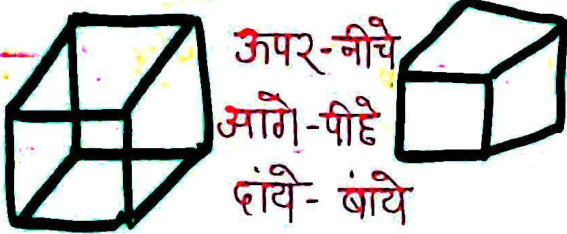 ऊपर-नीचे
आगे-पीछे
दांये- बांये